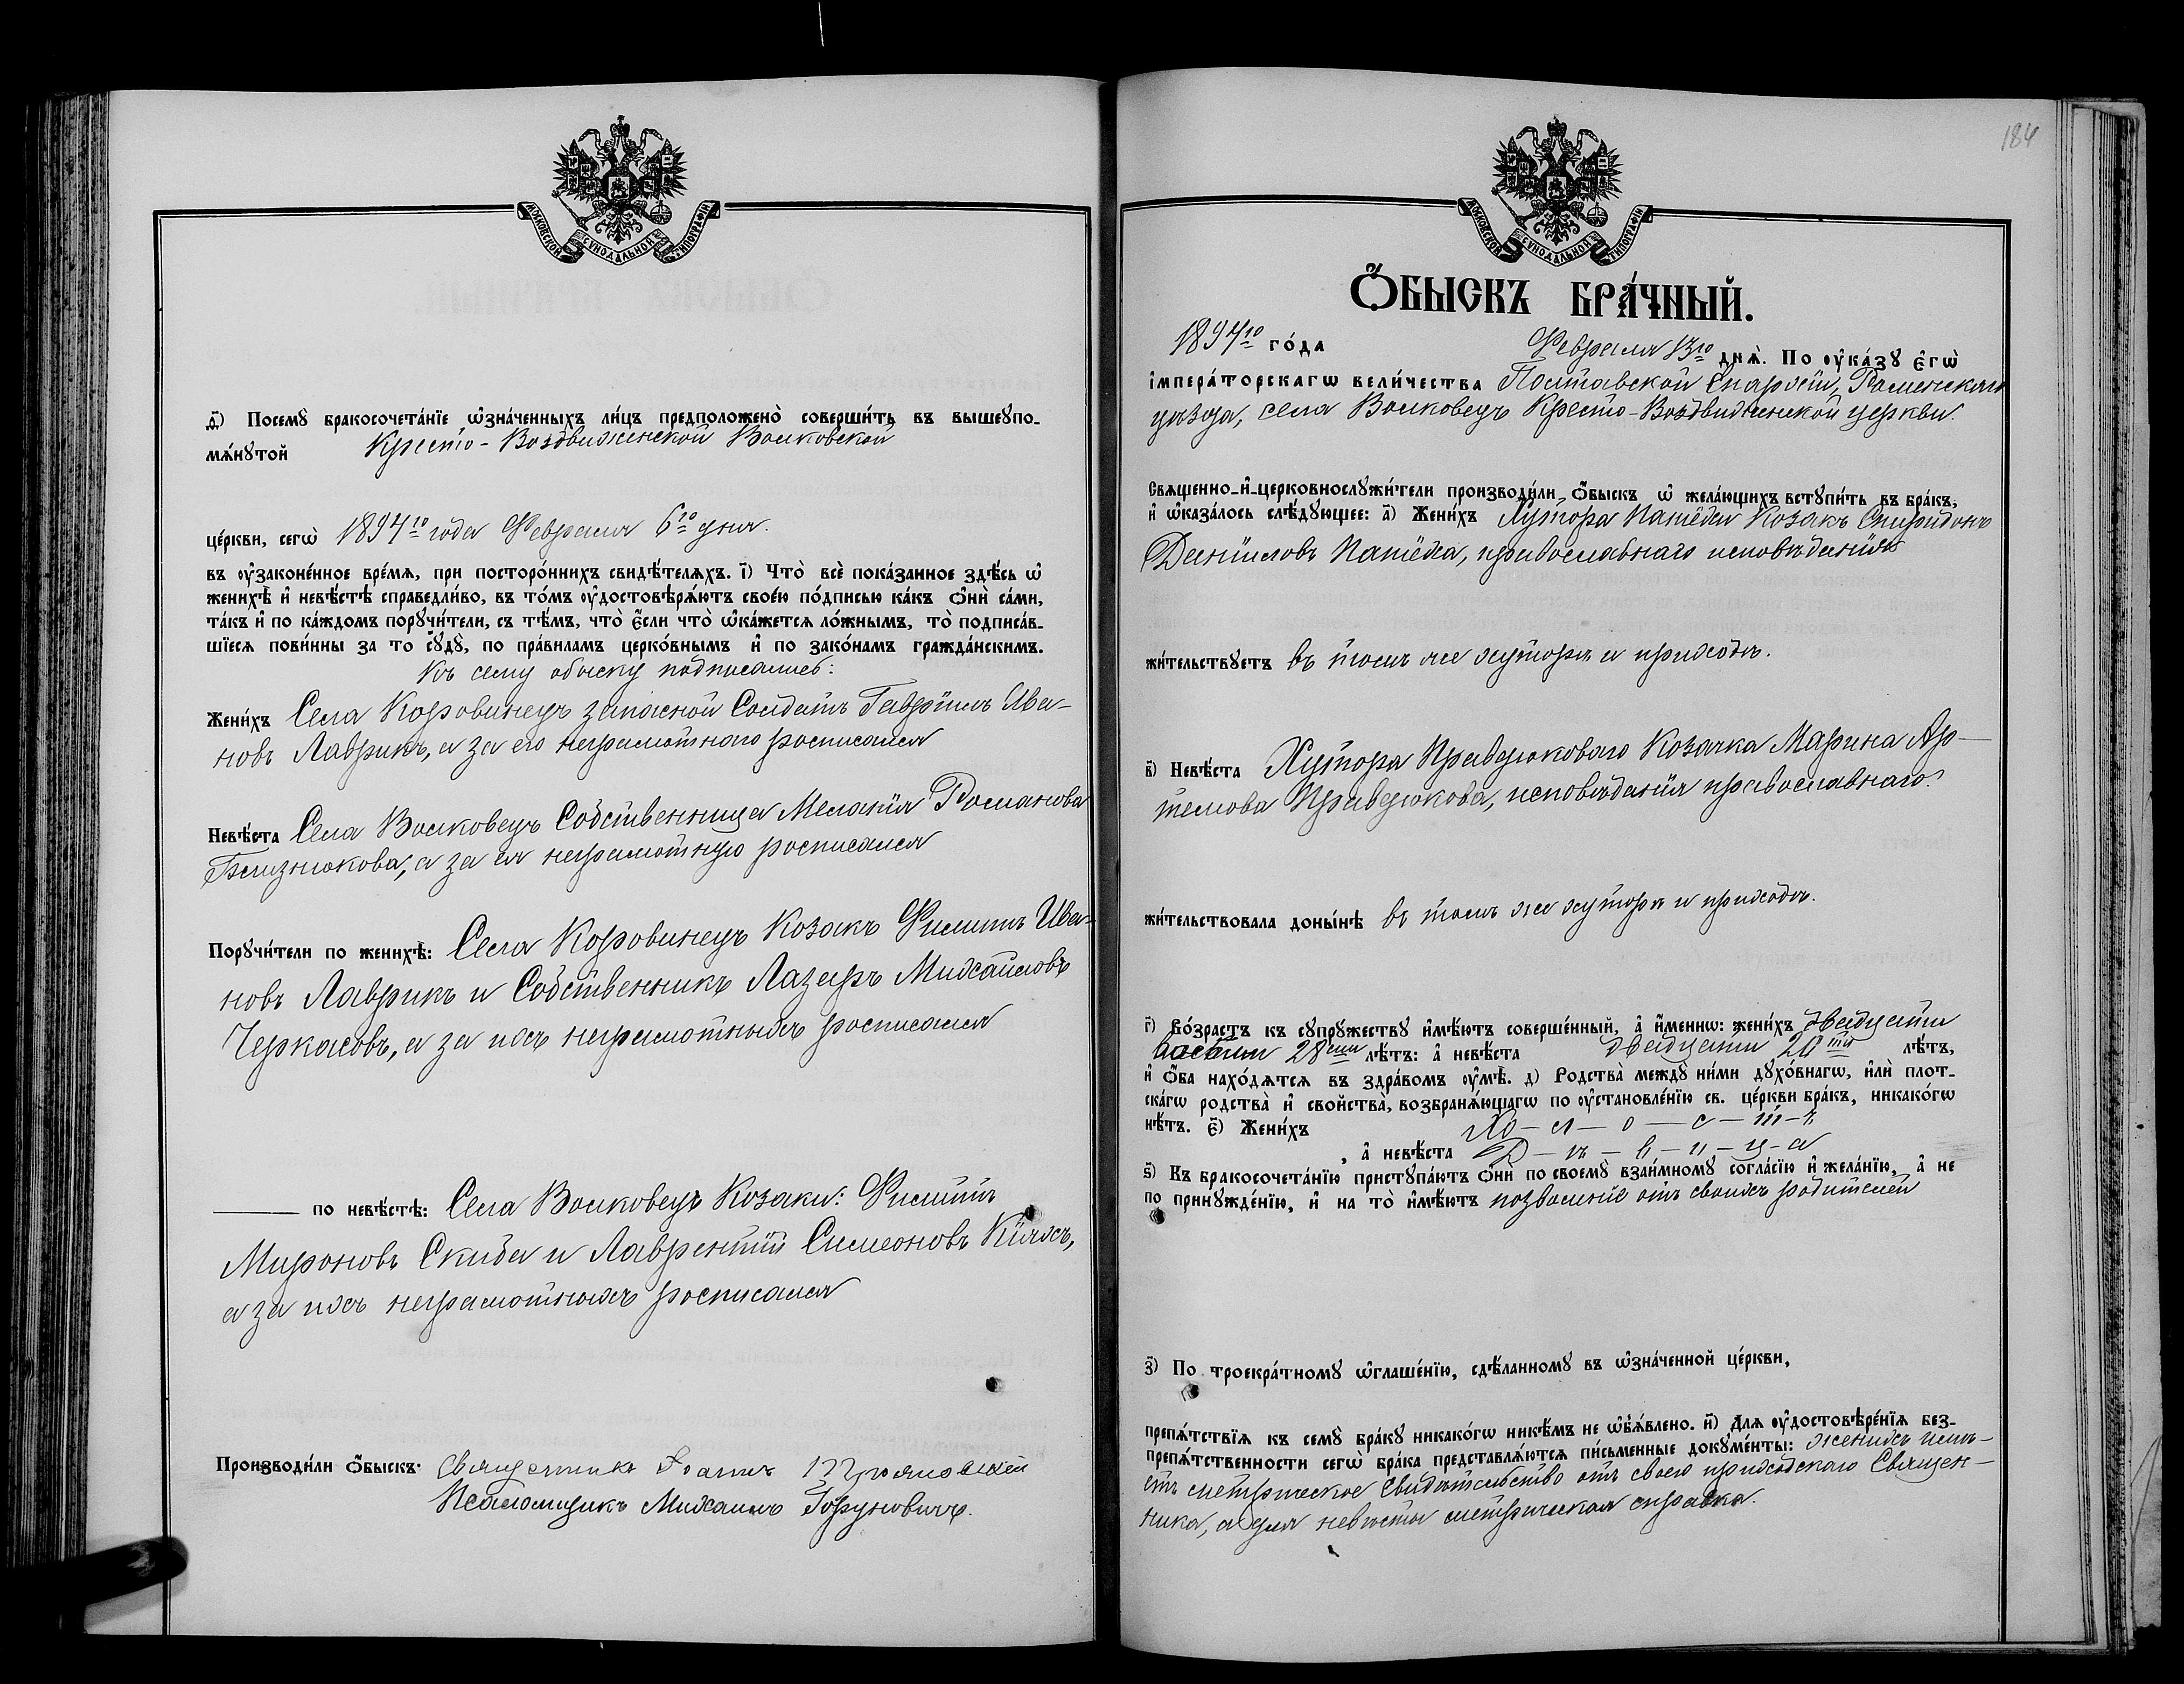 МОСКОВСКОЙ СѴНОДАЛЬНОЙ ТИПОГРАФІИ
д҃) Посемꙋ бракосочета́нїе ѡ҆зна́ченныхъ ли́цъ предположено̀ соверши́ть въ вышеꙋпо-
мѧ́нꙋтой Кресто-Воздвиженской Волковской
це́ркви, сегѡ̀ 1894го года Февраля 6го дня.
въ ᲂу҆законе́нное вре́мѧ, при посторо́ннихъ свидѣ́телѧхъ. і҃) Что̀ всѐ пока́занное здѣ́сь ѡ҆
женихѣ̀ и҆ невѣ́стѣ справедли́во, въ то́мъ ᲂу҆достовѣрѧ́ютъ свое́ю по́дписью ка́къ ѻ҆нѝ са́ми,
та́къ и҆ по ка́ждомъ порꙋчи́тели, съ тѣ́мъ, что̀ є҆́сли что̀ ѡ҆ка́жетсѧ ло́жнымъ, то̀ подписа́в-
шїесѧ пови́нны за то сꙋдꙋ̀, по пра́виламъ церко́внымъ и҆ по зако́намъ гражда́нскимъ.
Къ сему обыску подписались:
Жени́хъ Села Коровинецъ запасной Солдатъ Гавріилъ Ива-
новъ Лаврикъ, а за его неграмотнаго росписался
Невѣ́ста Села Волковецъ Собственница Меланія Романова
Близнюкова, а за ея неграмотную росписался
Порꙋчи́тели по женихѣ̀: Села Коровинецъ Козакъ Филиппъ Ива-
новъ Лаврикъ и Собственникъ Лазарь Михайловъ
Черкасовъ, а за ихъ неграмотныхъ росписался
по невѣ́стѣ: Села Волковецъ Козаки: Филиппъ
Мироновъ Скида и Лаврентій Симеоновъ Кіяхъ,
а за ихъ неграмотныхъ росписался
Производи́ли ѻ҆́быскъ: Священникъ Іоаннъ
Псаломщикъ Михаилъ Горуновичъ.
184
МОСКОВСКОЙ СѴНОДАЛЬНОЙ ТИПОГРАФІИ
Ѻ҆́БЫСКЪ БРА́ЧНЫЙ.
1894го го́да Февраля 13го днѧ̀. По ᲂу҆ка́зꙋ є҆гѡ̀
і҆мпера́торскагѡ вели́чества Полтавской Епархіи, Роменскаго
уѣзда, села Волковецъ Кресто-Воздвиженской церкви.
Свѧщенно-и҆-церковнослꙋжи́тели производи́ли ѻ҆́быскъ ѡ҆ жела́ющихъ встꙋпи́ть въ бра́къ,
и҆ ѡ҆каза́лось слѣ́дꙋющее: а҃) Жени́хъ Хутора Козакъ Спиридонъ
Даніиловъ православнаго исповѣданія
жи́тельствꙋетъ въ томъ же хуторѣ и приходѣ.
в҃) Невѣ́ста Хутора Правдюковаго Козачка Марина Ар-
темова Правдюкова, исповѣданія православнаго.
жи́тельствовала доны́нѣ въ томъ же хуторѣ и приходѣ.
г҃) Во́зрастъ къ сꙋпрꙋ́жествꙋ и҆мѣ́ютъ соверше́нный, а҆ и҆́меннѡ: жени́хъ двадцати
восьми 28ми лѣ́тъ: а҆ невѣ́ста двадцати 20ти лѣ́тъ,
и҆ ѻ҆́ба нахо́дѧтсѧ въ здра́вомъ ᲂу҆мѣ̀. д҃) Родства̀ междꙋ̀ ни́ми дꙋхо́внагѡ, и҆лѝ плот-
ска́гѡ родства̀ и҆ свойства̀, возбранѧ́ющагѡ по ᲂу҆становле́нїю св. це́ркви бра́къ, никако́гѡ
нѣ́тъ. є҃) Жени́хъ Хо-л-о-с-т-ъ
, а҆ невѣ́ста Д-ѣ-в-и-ц-а
ѕ҃) Къ бракосочета́нїю пристꙋпа́ютъ ѻ҆нѝ по своемꙋ̀ взаи́мномꙋ согла́сїю и҆ жела́нїю, а҆ не
по принꙋжде́нїю, и҆ на то̀ и҆мѣ́ютъ позволеніе отъ своихъ родителей
з҃) По троекра́тномꙋ ѡ҆глаше́нїю, сдѣ́ланномꙋ въ ѡ҆зна́ченной це́ркви,
препѧ́тствїѧ къ семꙋ̀ бра́кꙋ никако́гѡ никѣ́мъ не ѡ҆б̾ѧ́влено. и҃) Длѧ ᲂу҆достовѣре́нїѧ без-
препѧ́тственности сегѡ̀ бра́ка представлѧ́ютсѧ пи́сьменные докꙋме́нты: женихъ имѣ-
етъ метрическое свидѣтельство отъ своего приходскаго Священ-
ника, а для невѣсты метрическая справка.